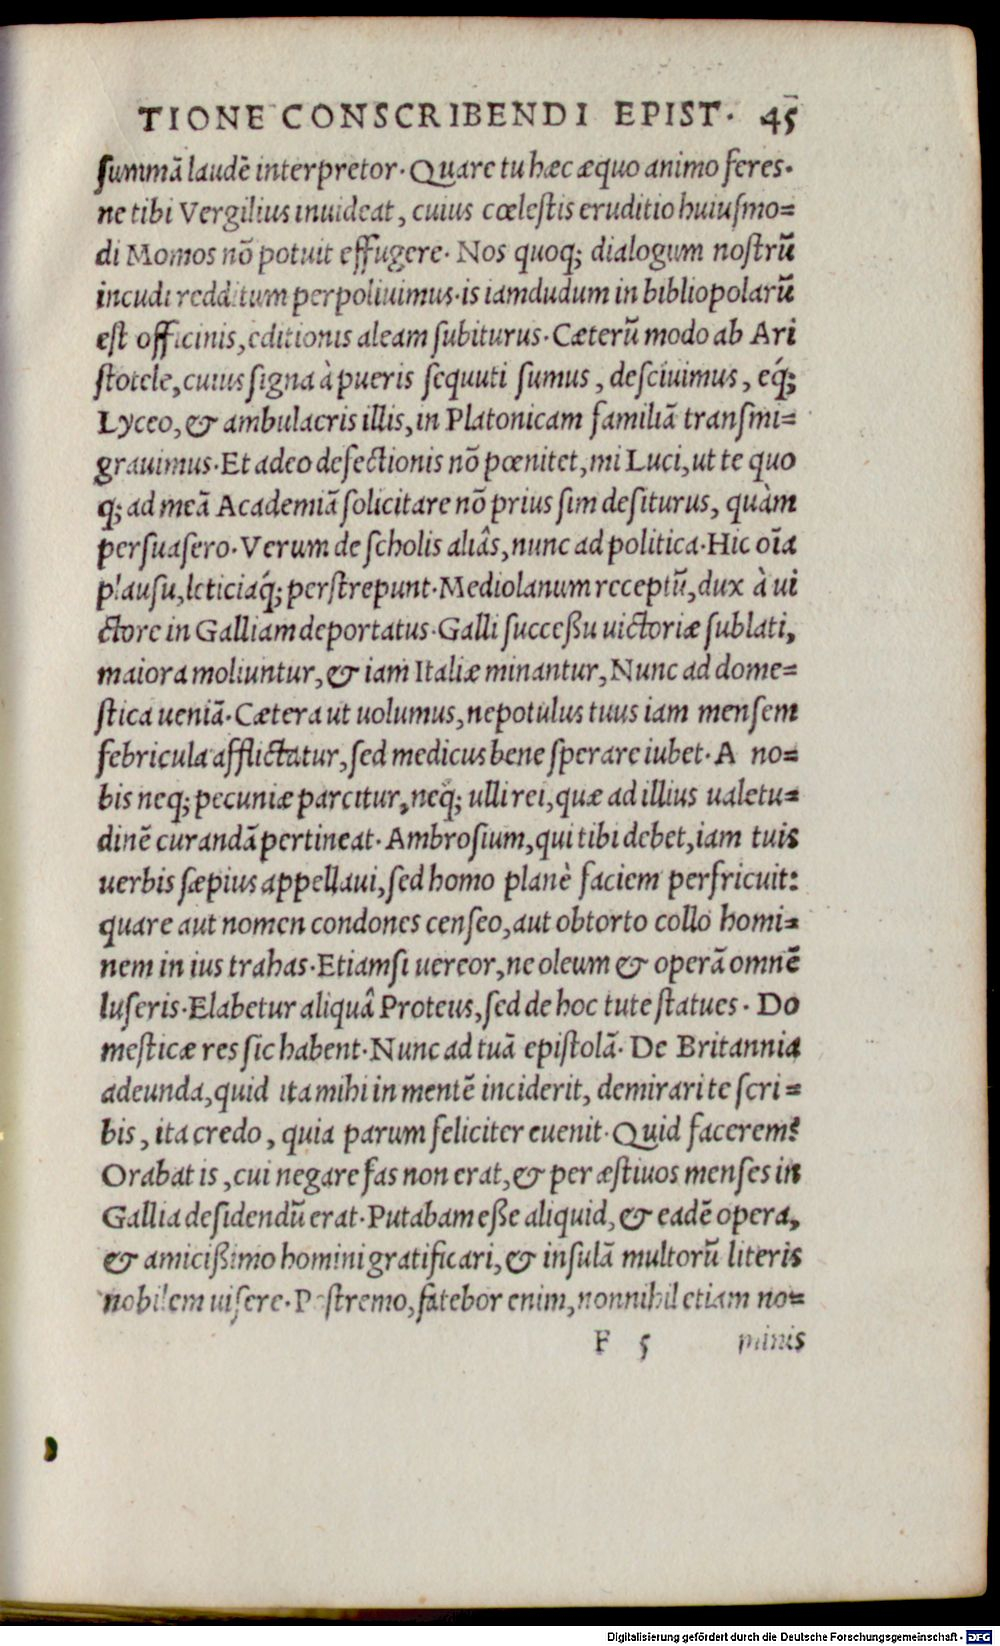 TIONE CONSCRIBENDI EPIST. 45
ſummã laudẽ interpretor. Quare tu hæc æquo animo feres.
ne tibi Vergilius inuideat, cuius cœleſtis eruditio huiuſmo=
di Momos nõ potuit effugere. Nos quoq; dialogum noſtrũ
incudi redditum perpoliuimus. is iamdudum in bibliopolarũ
eſt officinis, editionis aleam ſubiturus. Cæterũ modo ab Ari
ſtotele, cuius ſigna à pueris ſequuti ſumus, deſciuimus, eq́;
Lyceo, & ambulacris illis, in Platonicam familiã tranſmi=
grauimus. Et adeo defectionis nõ pœnitet, mi Luci, ut te quo
q; ad meã Academiã ſolicitare nõ prius ſim deſiturus, quàm
perſuaſero. Verum de ſcholis aliâs, nunc ad politica. Hic oĩa
plauſu, leticiaq́; perſtrepunt. Mediolanum receptũ, dux à ui
ctore in Galliam deportatus. Galli ſucceßu uictoriæ ſublati,
maiora moliuntur, & iam Italiæ minantur, Nunc ad dome=
ſtica ueniã. Cætera ut uolumus, nepotulus tuus iam menſem
febricula afflictatur, ſed medicus bene ſperare iubet. A no=
bis neq; pecuniæ parcitur, neq́; ulli rei, quæ ad illius ualetu=
dinẽ curandã pertineat. Ambroſium, qui tibi debet, iam tuis
uerbis ſæpius appellaui, ſed homo planè faciem perfricuit:
quare aut nomen condones cenſeo, aut obtorto collo homi=
nem in ius trahas. Etiamſi uereor, ne oleum & operã omnẽ
luſeris. Elabetur aliquâ Proteus, ſed de hoc tute ſtatues. Do
meſticæ res ſic habent. Nunc ad tuã epiſtolã. De Britannia
adeunda, quid ita mihi in mentẽ inciderit, demirari te ſcri=
bis, ita credo, quia parum feliciter euenit. Quid facerem?
Orabat is, cui negare fas non erat, & per æſtiuos menſes in
Gallia deſidendũ erat. Putabam eße aliquid, & eadẽ opera,
& amicißimo homini gratificari, & inſulã multorũ literis
nobilem uiſere. Poſtremo, fatebor enim, nonnihil etiam no=
F 5 minis
Digitalisierung gefördert durch die Deutsche Forschungsgemeinschaft - DFG